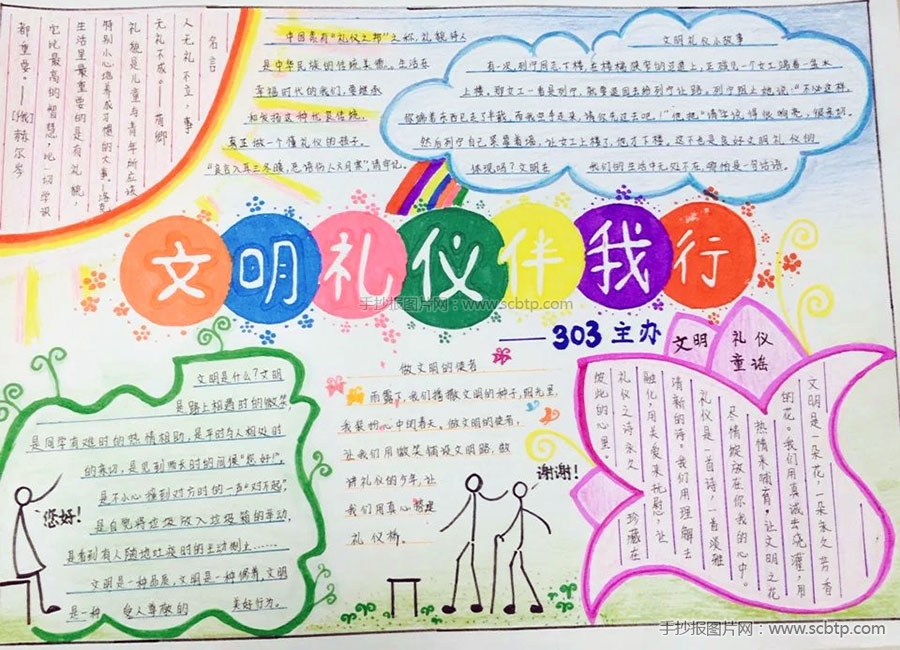 名言
人无礼不立，事
无礼不成。——荀卿
礼貌是儿童与青年所应该
特别小心地养成习惯的大事—洛克
生活里最重要的是有礼貌，
它比最高的智慧，比一切学识
都重要。——[俄]赫尔岑
中国素有“礼仪之邦”之称，礼貌待人
是中华民族的传统美德。生活在
幸福时代的我们，要继承
和发扬这种优良传统，
真正做一个懂礼仪的孩子。
“良言入耳三冬暖，恶语伤人六月寒”，请牢记。
文明礼仪小故事
有一次，列宁同志下楼，在楼梯狭窄的过道上，正碰见一个女工端着一盆水
上楼。那女工一看是列宁，就要退回去给列宁让路。列宁阻止她说：“不必这样，
你端着东西已走了半截，而我空手走来，请你先过去吧！”他把“请”字说得很响亮，很亲切。
然后列宁自己紧靠着墙，让女工上楼了，他才下楼。这不也是良好文明礼仪的
体现吗？文明在我们的生活中无处不在，哪怕是一句话语。
文明礼仪伴我行
——303主办
文明是什么？文明
是路上相遇时的微笑
是同学有难时的热情相助，是平时与人相处时
的亲切，是见到师长时的问候“您好！”，
是不小心撞到对方时的一声“对不起”，
是自觉将垃圾放入垃圾箱的举动，
是看到有人随地垃圾时的主动制止……
文明是一种品质，文明是一种修养，文明
是一种受人尊敬的美好行为。
您好！
做文明的使者
雨露了，我们播撒文明的种子，阳光里，
我装扮心中的春天。做文明的使者，
让我们用微笑铺设文明路，做
讲礼仪的少年，让
我们用真心筑造
礼仪桥。
谢谢！
文明礼仪
童谣
文明是一朵花，一朵永久芳香
的花。我们用真诚去浇灌，用
热情来哺育，让文明之花
尽情绽放在你我的心中。
礼仪是一首诗，一首淡雅
清新的诗。我们用理解去
融化，用关爱来抚慰，让
礼仪之诗永久珍藏在
彼此的心里。
手抄报图片网：www.scbtp.com
手抄报图片网：www.scbtp.com